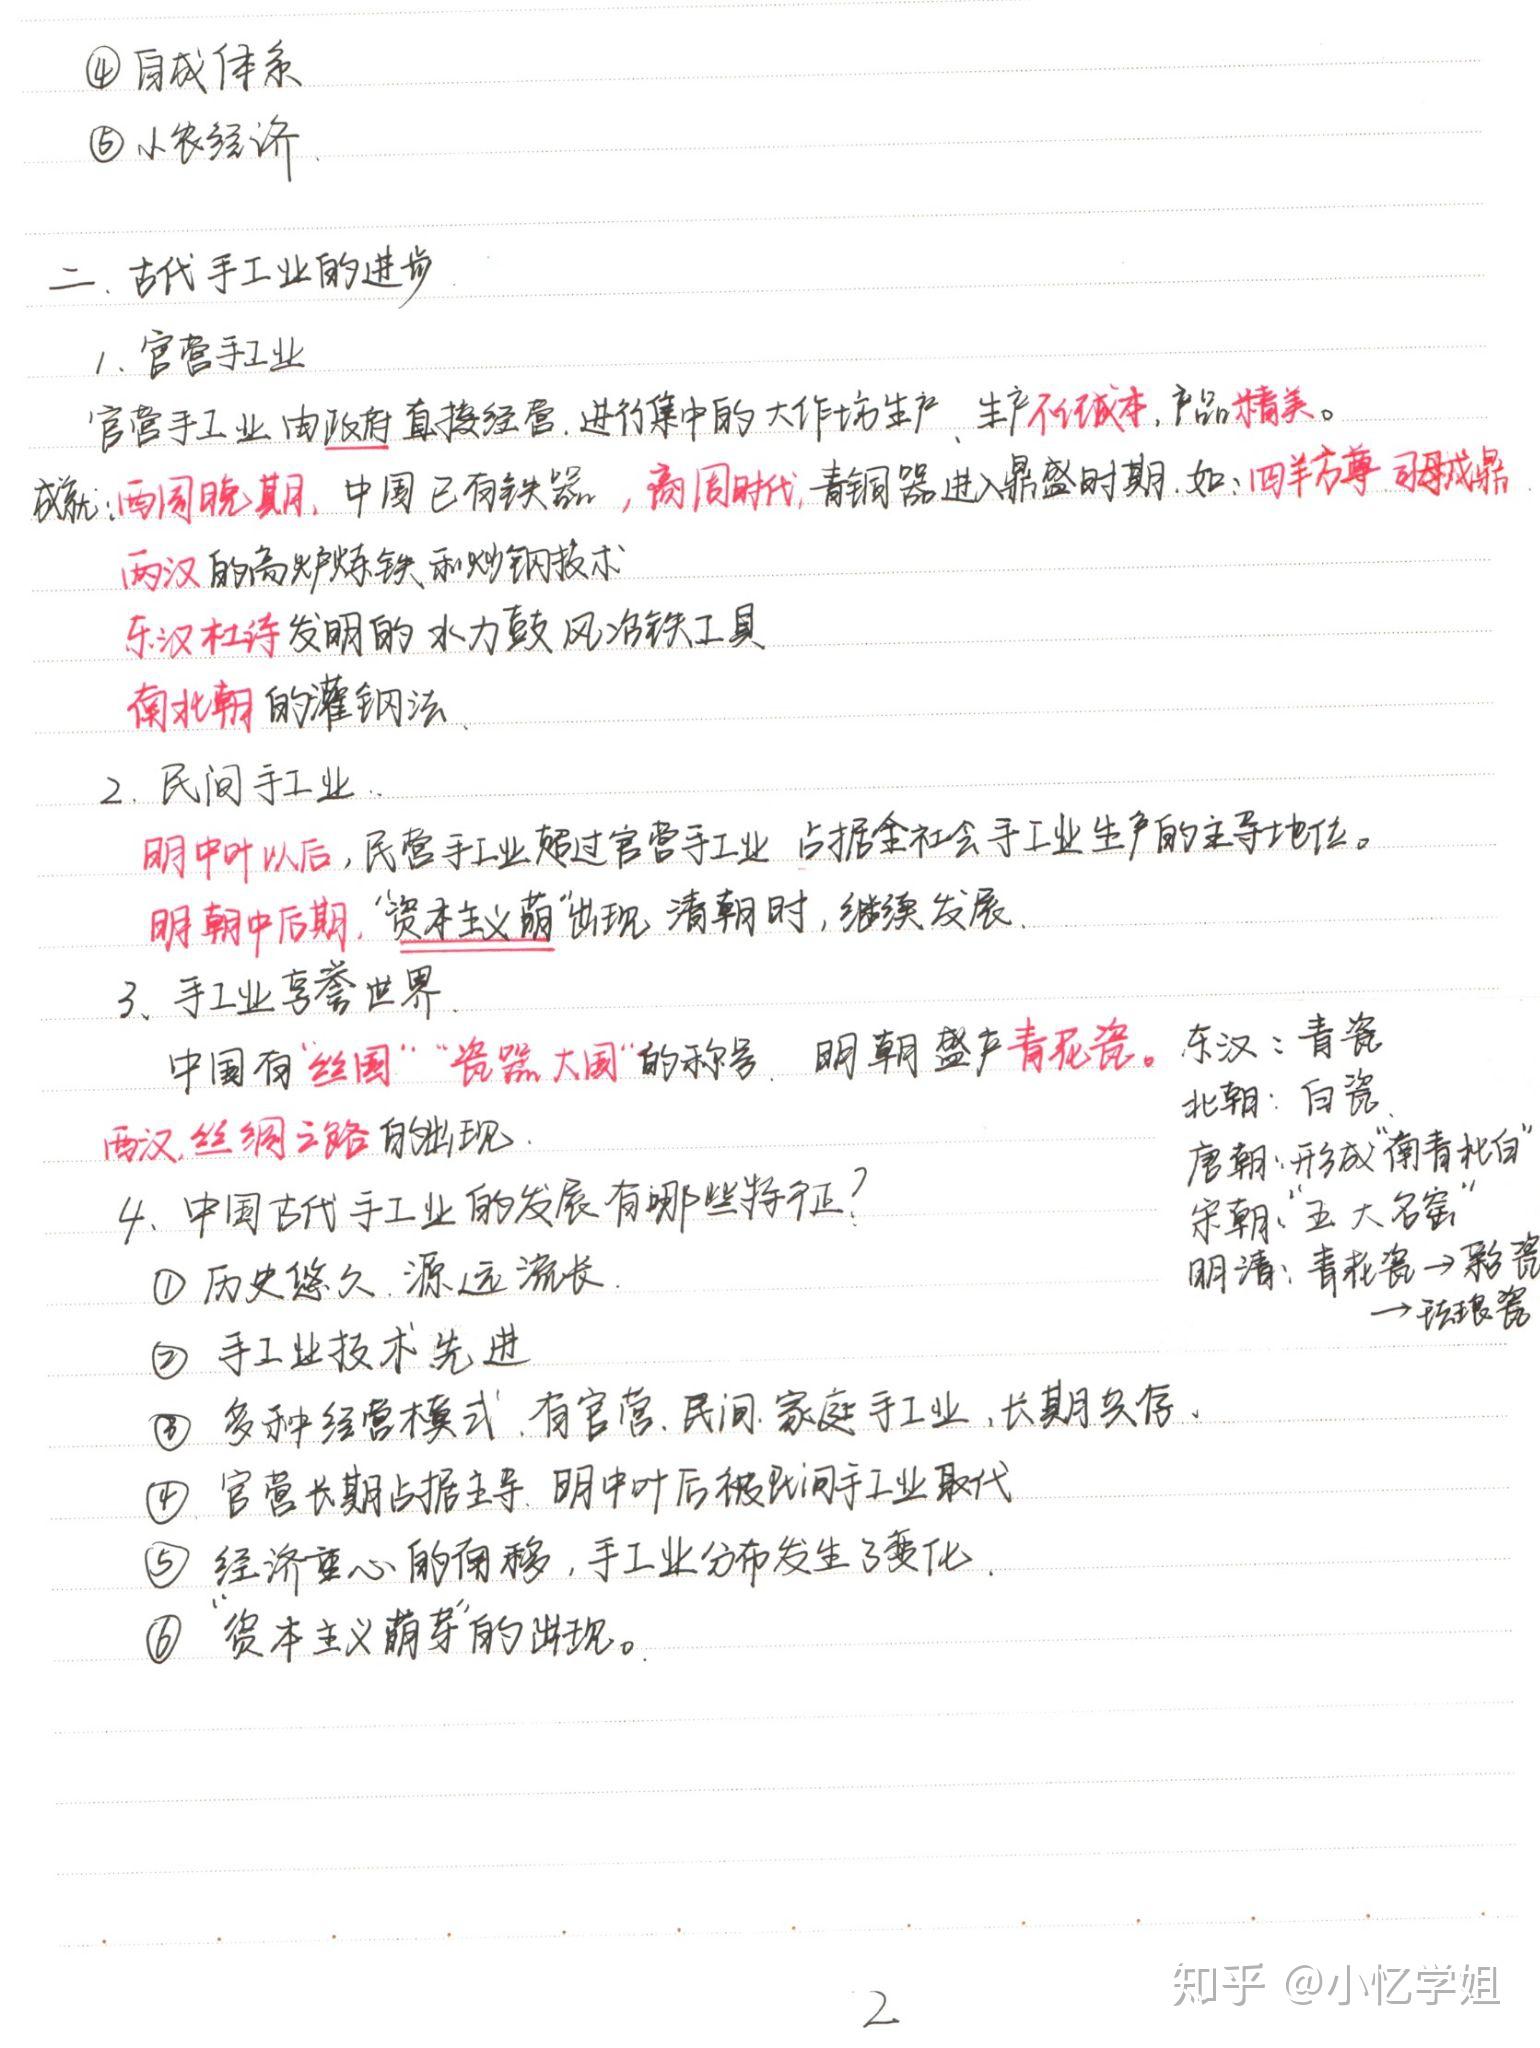 ④自成体系
⑤小农经济.
二、古代手工业的进步.
1、官营手工业
官营手工业由政府直接经营、进行集中的大作坊生产、生产不计成本,产品精美。
成就:西周晚期,中国已有铁器,商周时代,青铜器进入鼎盛时期.如:四羊方尊 司母戊鼎.
两汉的高炉炼铁和炒钢技术
东汉杜诗发明的水力鼓风冶铁工具
南北朝的灌钢法、
2、民间手工业..
明中叶以后,民营手工业超过官营手工业 占据全社会手工业生产的主导地位。
明朝中后期,“资本主义萌”出现 清朝时,继续发展.
3、手工业享誉世界.
中国有“丝国”“瓷器大国”的称号. 明朝盛产青花瓷。
两汉,丝绸之路的出现.
东汉:青瓷
北朝:白瓷.
唐朝:形成“南青北白”
宋朝:“五大名窑”
明清:青花瓷→彩瓷
→珐琅瓷
4、中国古代手工业的发展有哪些特征?
①历史悠久.源远流长.
②手工业技术先进
③多种经营模式.有官营.民间.家庭手工业、长期共存、
④官营长期占据主导.明中叶后被民间手工业取代
⑤经济重心的南移,手工业分布发生了变化.
⑥“资本主义萌芽”的出现。
2
知乎 @小忆学姐